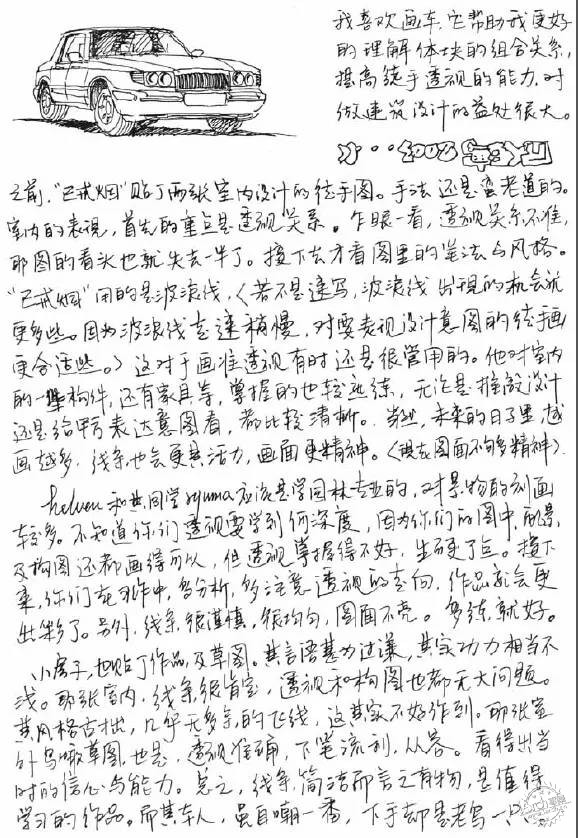 我喜欢画车,它帮助我更好
的理解体块的组合关系,
提高徒手透视的能力.对
做建筑设计的益处很大。
之前,"已戒烟"贴了两张室内设计的徒手图。手法还是蛮老道的。
室内的表现,首先的重点是透视关系。乍眼一看,透视关系不准,
那图的看头也就失去一半了。接下去才看图里的笔法与风格。
"已戒烟"用的是波浪线,(若不是速写,波浪线出现的机会就
更多些。因为波浪线走速稍慢,对要表现设计意图的徒手画
更合适些。)这对于画准透视有时还是很管用的。他对室内
的一些构件,还有家具等,掌握的也较熟练,无论是推敲设计
还是给甲方表达意图看,都比较清晰。当然,未来的日子里,越
画越多,线条也会更具活力,画面更精神。(现在图面不够多精神)
helven和其同学ryuma应该是学园林专业的,对景物的刻画
较多。不知道你们透视要学到何深度,因为你们的图中,配景,
及构图还都画得可以,但透视掌握得不好,生硬了点。接下
来,你们在习作中,多分析,多注意透视的走向,作品就会更
出彩了。另外,线条很谨慎,很均匀,图面不亮。多练就好。
小房子,也贴了作品及草图。其言语甚为过谦,其实功力相当不
浅。那张室内,线条很肯定,透视和构图也都无大问题。
其风格古拙,几乎无多余的飞线,这其实不好作到。那张室
外鸟瞰草图,也是,透视准确,下笔流利,从容。看得出当
时的信心与能力。总之,线条简洁而言之有物,是值得
学习的作品。而其本人,虽自嘲一番,下手却是老鸟一只